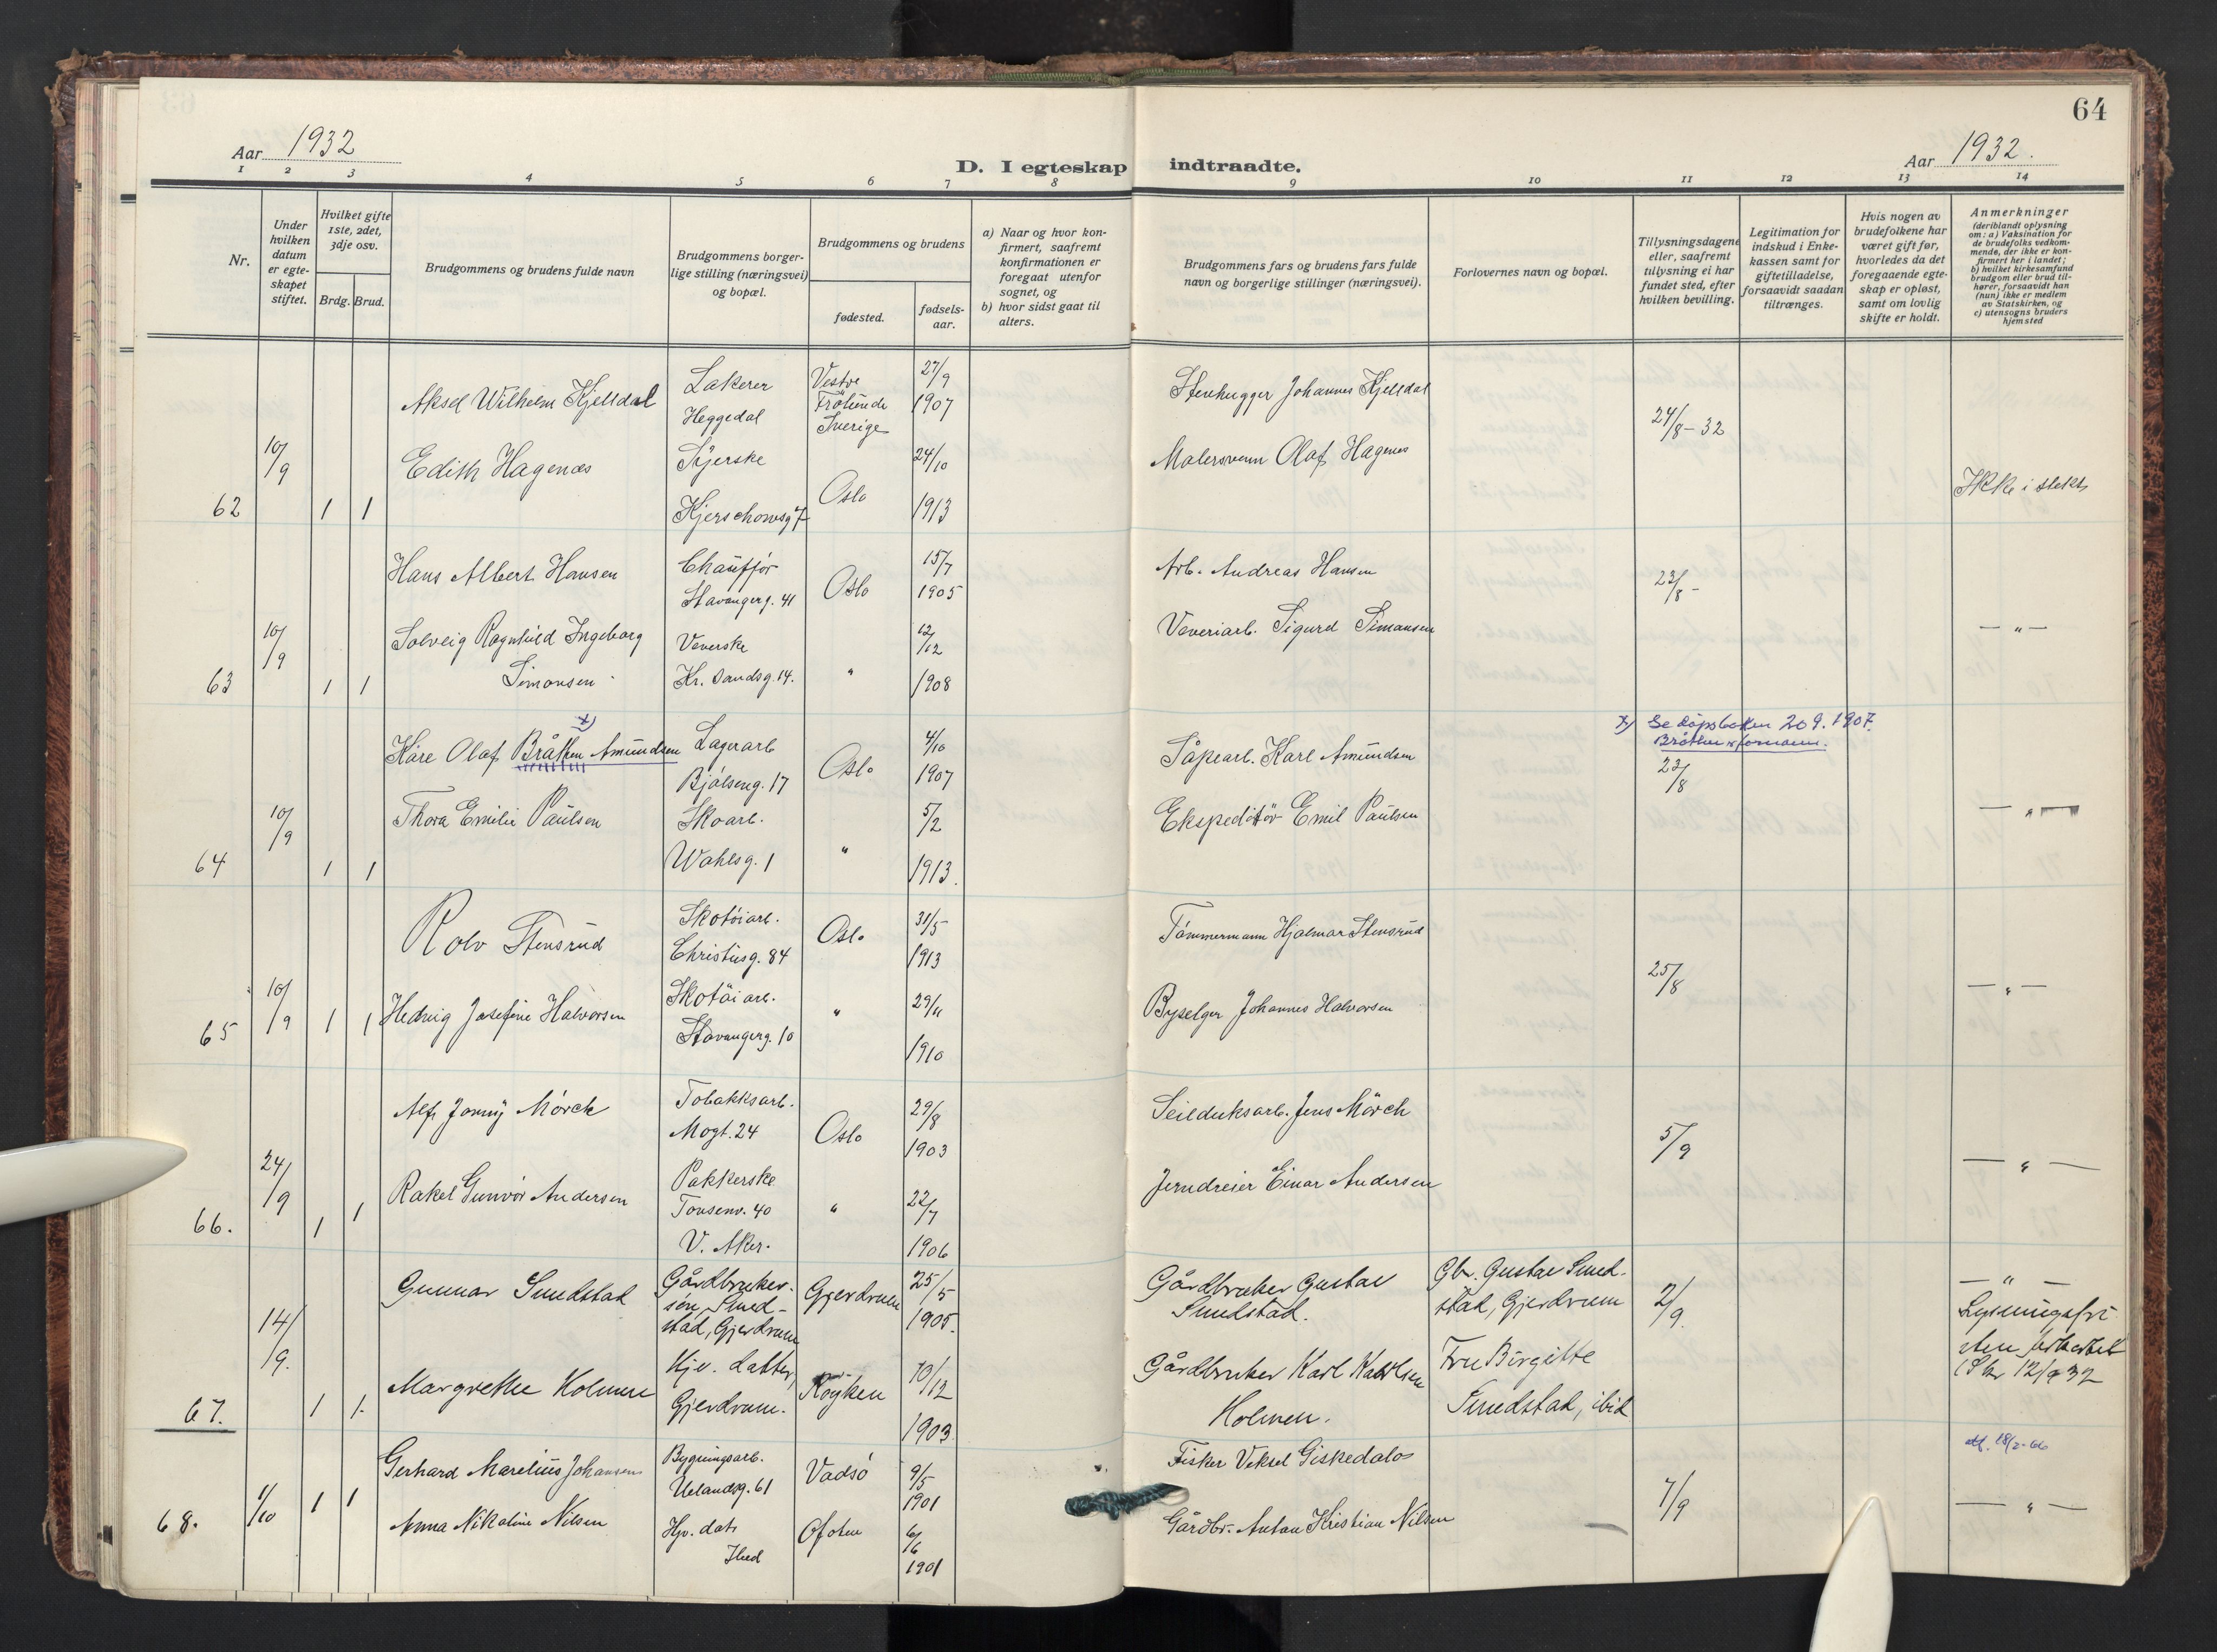 64
Aar 1932
D. I egteskap indtraadte.
Aar 1932.
1 2 3 4 5 6 7 8 9 10 11 12 13 14
Nr.
Under
hvilken
datum
er egte-
skapet
stiftet.
Hvilket gifte
1ste, 2det,
3dje osv.
Brdg. Brud.
Brudgommens og brudens fulde navn
Brudgommens borger-
lige stilling (næringsvei)
og bopæl.
Brudgommens og brudens
fødested.
fødsels-
aar.
a) Naar og hvor kon-
firmert, saafremt
konfirmationen er
foregaat utenfor
sognet, og
b) hvor sidst gaat til
alters.
Brudgommens fars og brudens fars fulde
navn og borgerlige stillinger (næringsvei).
Forlovernes navn og bopæl.
Tillysningsdagene
eller, saafremt
tillysning ei har
fundet sted, efter
hvilken bevilling.
Legitimation for
indskud i Enke-
kassen samt for
giftetilladelse,
forsaavidt saadan
tiltrænges.
Hvis nogen av
brudefolkene har
været gift før,
hvorledes da det
foregaaende egte-
skap er opløst,
samt om lovlig
skifte er holdt.
Anmerkninger
(deriblandt oplysning
om: a) Vaksination for
de brudefolks vedkom-
mende, der ikke er kon-
firmert her i landet;
b) hvilket kirkesamfund
brudgom eller brud til-
hører, forsaavidt han
(hun) ikke er medlem
av Statskirken, og
c) utensogns bruders
hjemsted
62
10/9
1 1
Aksel Wilhelm Kjelldal
Lakerer
Heggedal
Vestre
Frölunda
Sverige
27/9
1907
Stenhugger Johannes Kjelldal
24/8-32
Edith Hagenæs
Syerske
Kjerschowsg 7
Oslo
24/10
1913
Malersvenn Olaf Hagenes
Ikke i slekt
63
10/9
1 1
Hans Albert Hansen
Chauffør
Stavangerg. 41
Oslo
15/7
1905
Arb. Andreas Hansen
23/8-
Solveig Ragnhild Ingeborg
Simonsen
Veverske
Kr. Sandsg. 14.
"
12/12
1908
Veveriarb. Sigurd Simonsen
— " —
64
10/9
1 1
x)
Kåre Olaf Bråthen Amundsen
Lagerarb
Bjølseng. 17
Oslo
4/10
1907
Såpearb. Karl Amundsen
x) Se dåpsboken 209. 1907.
Bråthen er fornavn.
23/8
Thora Emilie Paulsen
Skoarb.
Wahlsg. 1
"
5/2
1913.
Ekspeditør Emil Paulsen
— " —
65
10/9
1 1
Rolv Stensrud
Skotöiarb.
Christiesg. 84
Oslo
31/5
1913
Tömmermann Hjalmar Stensrud
25/8
Hedvig Josefine Halvorsen
Skotöiarb.
Stavangerg. 10
"
29/11
1910
Byselger Johannes Halvorsen
— " —
66.
24/9
1 1
Alf Jonny Mörch
Tobakksarb.
Mogt. 24
Oslo
29/8
1903
Seilduksarb. Jens Mörch
5/9
Rakel Gunvor Andersen
Pakkerske
Tonsenv. 40
V. Aker.
"
22/7
1906
Jerndreier Einar Andersen
— " —
67.
14/9.
1 1.
Gunnar Smedstad
Gårdbruker-
søn, Smed-
stad, Gjerdrum
Gjerdrum
25/5
1905.
Gårdbruker Gustav
Smedstad.
Gbr. Gustav Smed-
stad, Gjerdrum
2/9.
— " —
Lysningsfri-
sten forkortet
(Skr 12/9 32
Margrethe Holmen
Hjv. datter,
Gjerdrum.
Røyken
10/12
1903
Gårdbruker Karl Karlsen
Holmen.
Fru Birgitte
Smedstad, ibid
68.
1/10
1 1
Gerhard Marelius Johansen
Bygningsarb.
Uelandsg. 61
Vadsö
9/5
1901
Fisker Veksel Giskedalos
7/9
att. 18/2-66
Anna Nikoline Nilsen
Hjv. dat.
Ibid
Ofoten
6/6
1901
Gårdbr. Anton Kristian Nilsen
— " —